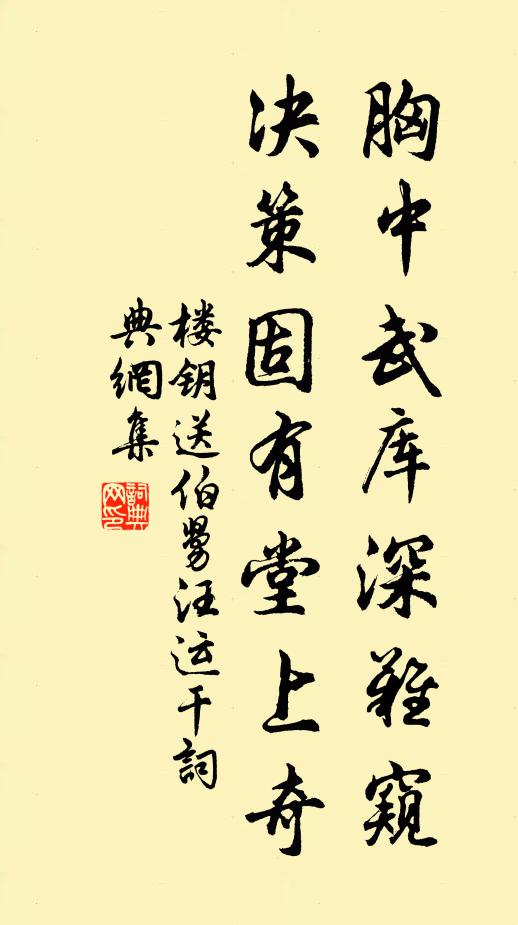 胸中武库深难窥
决策固有堂上奇
楼钥送伯舅汪运干詞
典網集
詞典网印